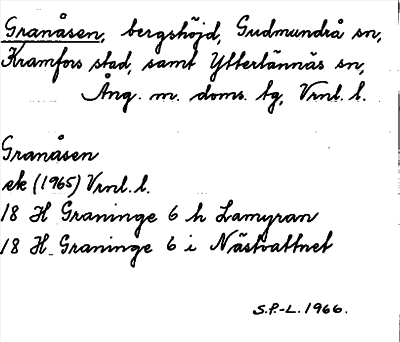 Granåsen, bergshöjd, Gudmundrå sn,
Kramfors stad, samt Ytterlännäs sn,
Ång. m. doms. tg, Vrnl. l.
Granåsen
ek (1965) Vrnl. l.
18 H Graninge 6 h Lamyran
18 H Graninge 6 i Nästvattnet
S.P.-L. 1966.